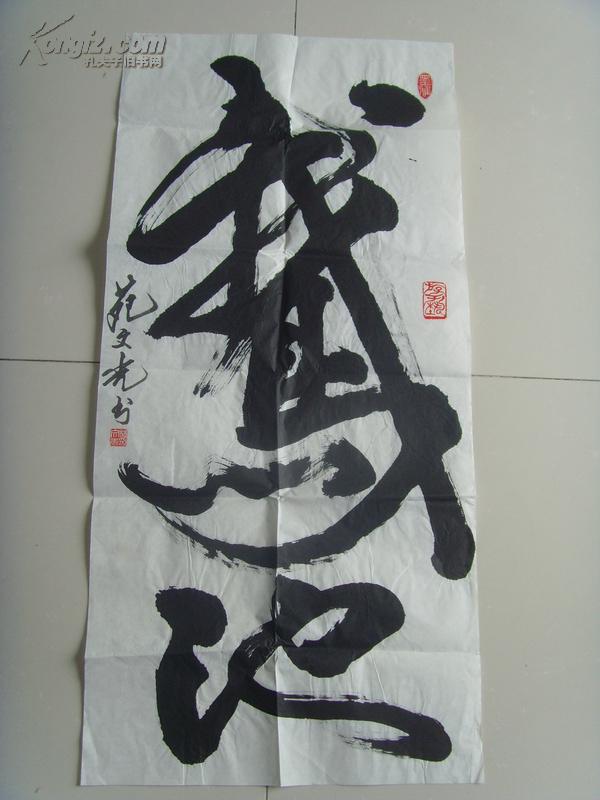 鹅池
范文光书
Kongfz.com
孔夫子旧书网